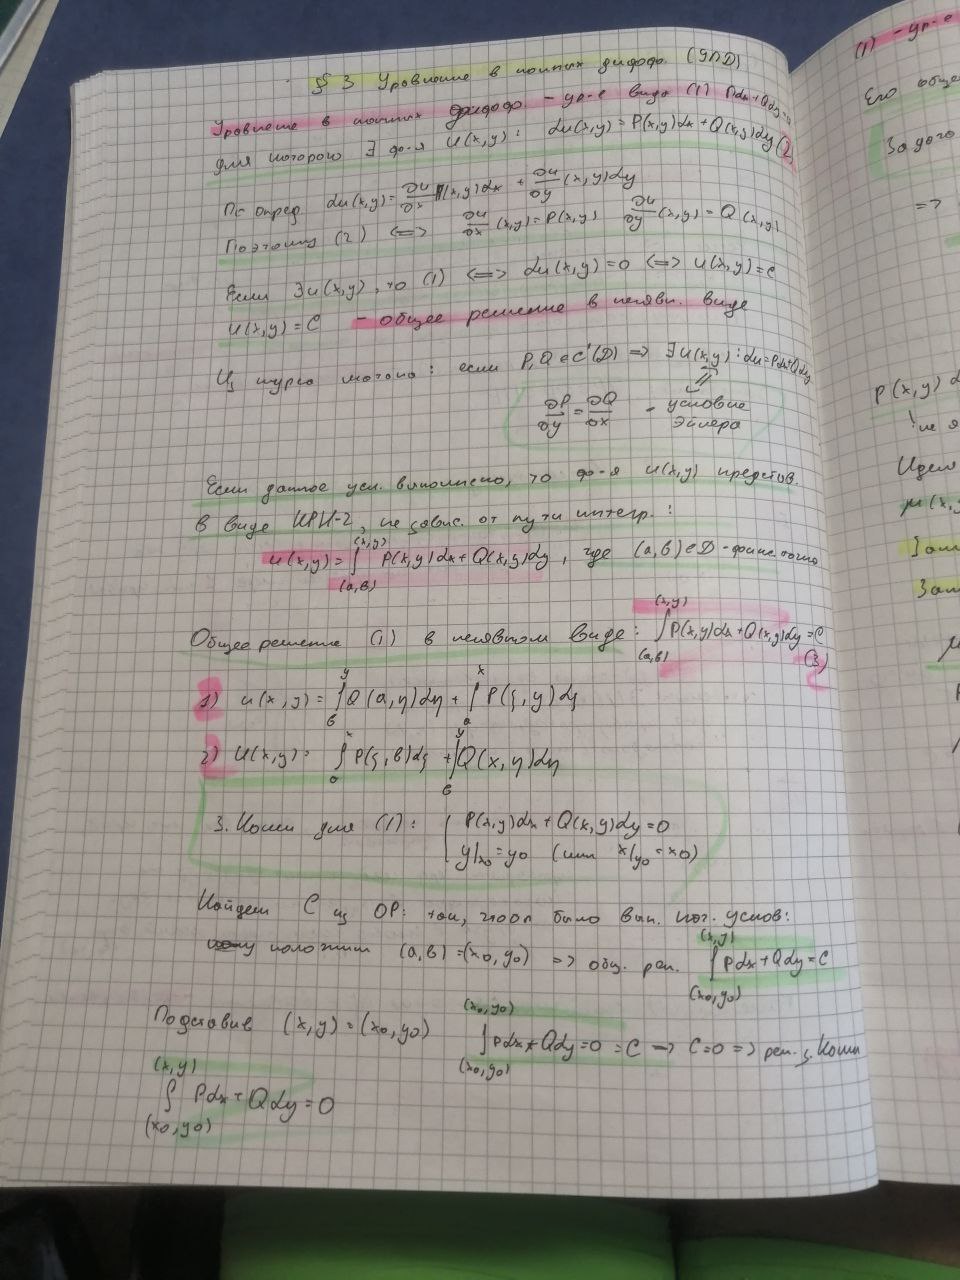 § 3 Уравнение в полных дифф. (УПД)
Уравнение в полных дифф - ур-е вида (1) Pdx+Qdy=0
для которого ∃ ф-я u(x,y): du(x,y)=P(x,y)dx+Q(x,y)dy (2)
По опред. du(x,y)=∂u/∂x (x,y)dx + ∂u/∂y (x,y)dy
Поэтому (2) <=> ∂u/∂x (x,y)=P(x,y) ∂u/∂y (x,y)=Q(x,y)
Если ∃u(x,y), то (1) <=> du(x,y)=0 <=> u(x,y)=C
u(x,y)=C - общее решение в неявн. виде
Из курса : если P,Q ∈ C'(D) => ∃u(x,y): du=Pdx+Qdy
∂P/∂y = ∂Q/∂x - условие
Эйлера
Если данное усл. выполнено, то ф-я u(x,y) представ.
в виде КРИ-2, не завис. от пути интегр.:
u(x,y)=∫_(a,b)^(x,y) P(x,y)dx+Q(x,y)dy, где (a,b)∈D -
Общее решение (1) в неявном виде: ∫_(a,b)^(x,y) P(x,y)dx+Q(x,y)dy=C (3)
1) u(x,y)=∫_b^y Q(a,η)dη+∫_a^x P(ξ,y)dξ
2) u(x,y)=∫_a^x P(ξ,b)dξ+∫_b^y Q(x,η)dη
З. Коши для (1): { P(x,y)dx+Q(x,y)dy=0
y|x0=y0 (или x|y0=x0)
Найдем C из ОР: так, чтоб было вып. нач. услов:
положим (a,b)=(x0,y0) => общ. реш. ∫_(x0,y0)^(x,y) Pdx+Qdy=C
Подставив (x,y)=(x0,y0) ∫_(x0,y0)^(x0,y0) Pdx+Qdy=0=C => C=0 => реш. з. Коши
∫_(x0,y0)^(x,y) Pdx+Qdy=0
(1) - ур-е
Его обще
P(x,y)d